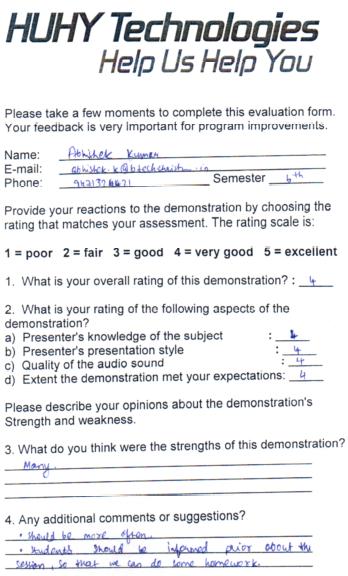 HUHY Technologies
Help Us Help You
Please take a few moments to complete this evaluation form.
Your feedback is very Important for program improvements.
Name: Abhishek Kumar
E-mail:
Phone: Semester 6th
Provide your reactions to the demonstration by choosing the
rating that matches your assessment. The rating scale is:
1 = poor 2 = fair 3 = good 4 = very good 5 = excellent
1. What is your overall rating of this demonstration? : 4
2. What is your rating of the following aspects of the
demonstration?
a) Presenter's knowledge of the subject : 4
b) Presenter's presentation style : 4
c) Quality of the audio sound : 4
d) Extent the demonstration met your expectations: 4
Please describe your opinions about the demonstration's
Strength and weakness.
3. What do you think were the strengths of this demonstration?
Many.
4. Any additional comments or suggestions?
• Should be more often.
• Students should be informed prior about the
session, so that we can do some homework.